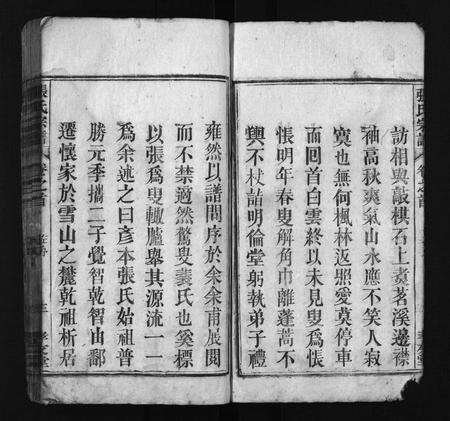 張氏宗譜
卷之首
訪相與敲棋石上煮茗溪邊襟
袖高秋爽氣山水應不笑人寂
寞也無何楓林返照愛莫停車
而回首白雲終以未見叟為悵
悵明年春叟解角巾離蓬蒿不
輿不杖詣明倫堂躬執弟子禮
雍然以譜問序於余余甫展閱
而不禁適然驚叟裴氏也奚標
以張為叟輙臚舉其源流一一
為余述之曰彦本張氏始祖普
勝元季攜二子覺智乾智山鄱
遷懷家於雪山之麓乾祖析居
張氏宗譜
卷之首